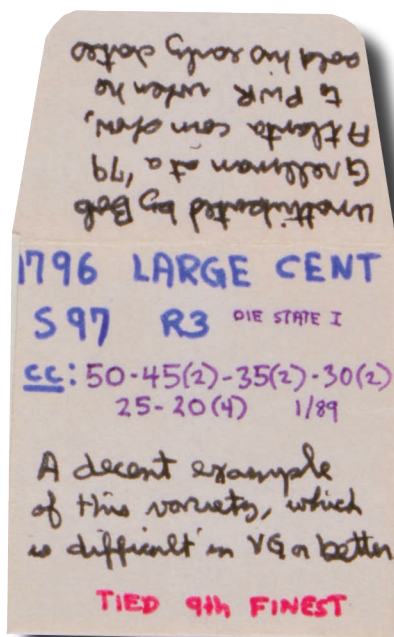 unattributed by Bob
Grellman at a '79
Atlanta coin show,
to PWR when he
sold his early dates
1796 LARGE CENT
S 97 R3 DIE STATE I
CC: 50-45(2)-35(2)-30(2)
25-20(4) 1/89
A decent example
of this variety, which
is difficult in VG or better
TIED 9th FINEST